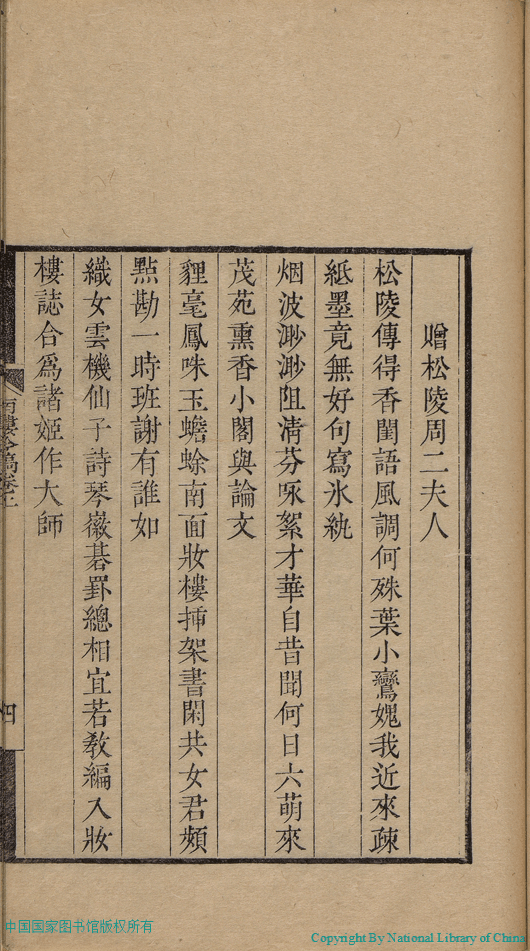 贈松陵周二夫人
松陵傳得香閨語風調何殊葉小鸞媿我近來疎
紙墨竟無好句寫氷紈
烟波渺渺阻清芬咏絮才華自昔聞何日六萌來
茂苑熏香小閣與論文
貍毫鳳咮玉蟾蜍南面妝樓揷架書閑共女君頻
㸃勘一時班謝有誰如
織女雲機仙子詩琴徽碁罫總相宜若教編入妝
樓誌合爲諸姬作大師
四
中国国家图书馆版权所有
Copyright By National Library of China